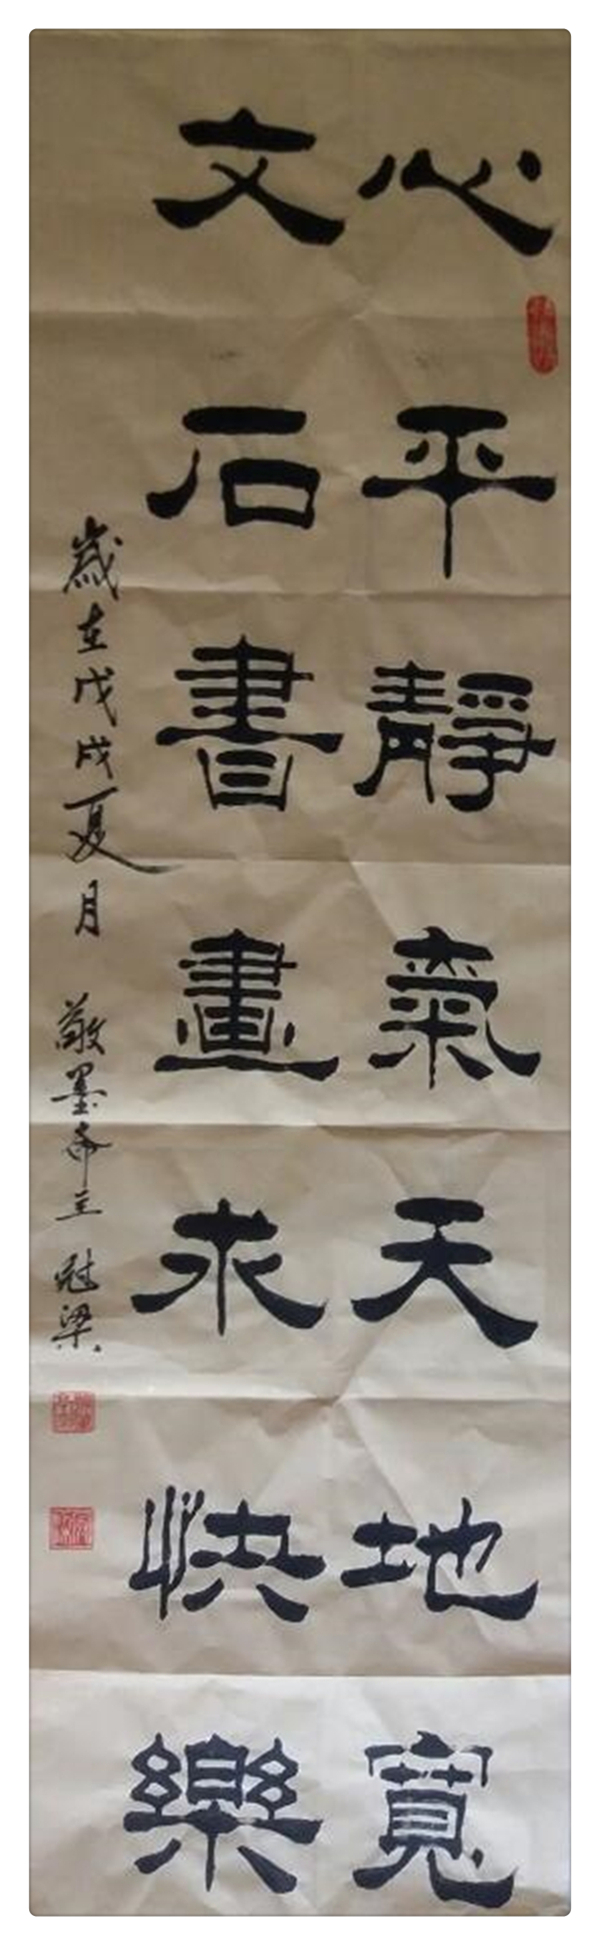 心平靜氣天地寬
文石書畫求快樂
歲在戊戌夏月 敬墨齋主 冠梁